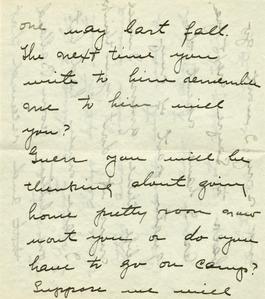 one way last fall.
The next time you
write to him remember
me to him will
you?
Guess you will be
thinking about going
home pretty soon now
wont you or do you
have to go on camp?
Suppose we will